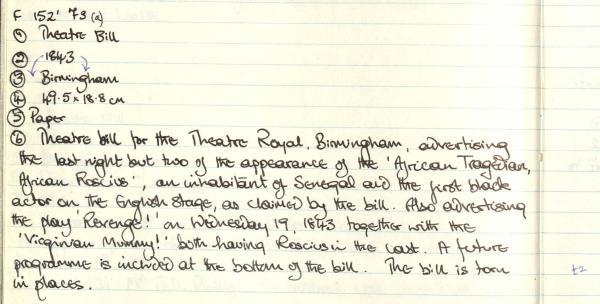 F 152' 73 (a)
① Theatre Bill
② 1843
③ Birmingham
④ 49.5 x 18.8 cm
⑤ Paper
⑥ Theatre bill for the Theatre Royal, Birmingham, advertising
the last night but two of the appearance of the 'African Tragedian,
African Roscius', an inhabitant of Senegal and the first black
actor on the English stage, as claimed by the bill. Also advertising
the play 'Revenge!' on Wednesday 19, 1843 together with the
'Virginian Mummy!' both having Roscius in the cast. A future
programme is included at the bottom of the bill. The bill is torn
in places.